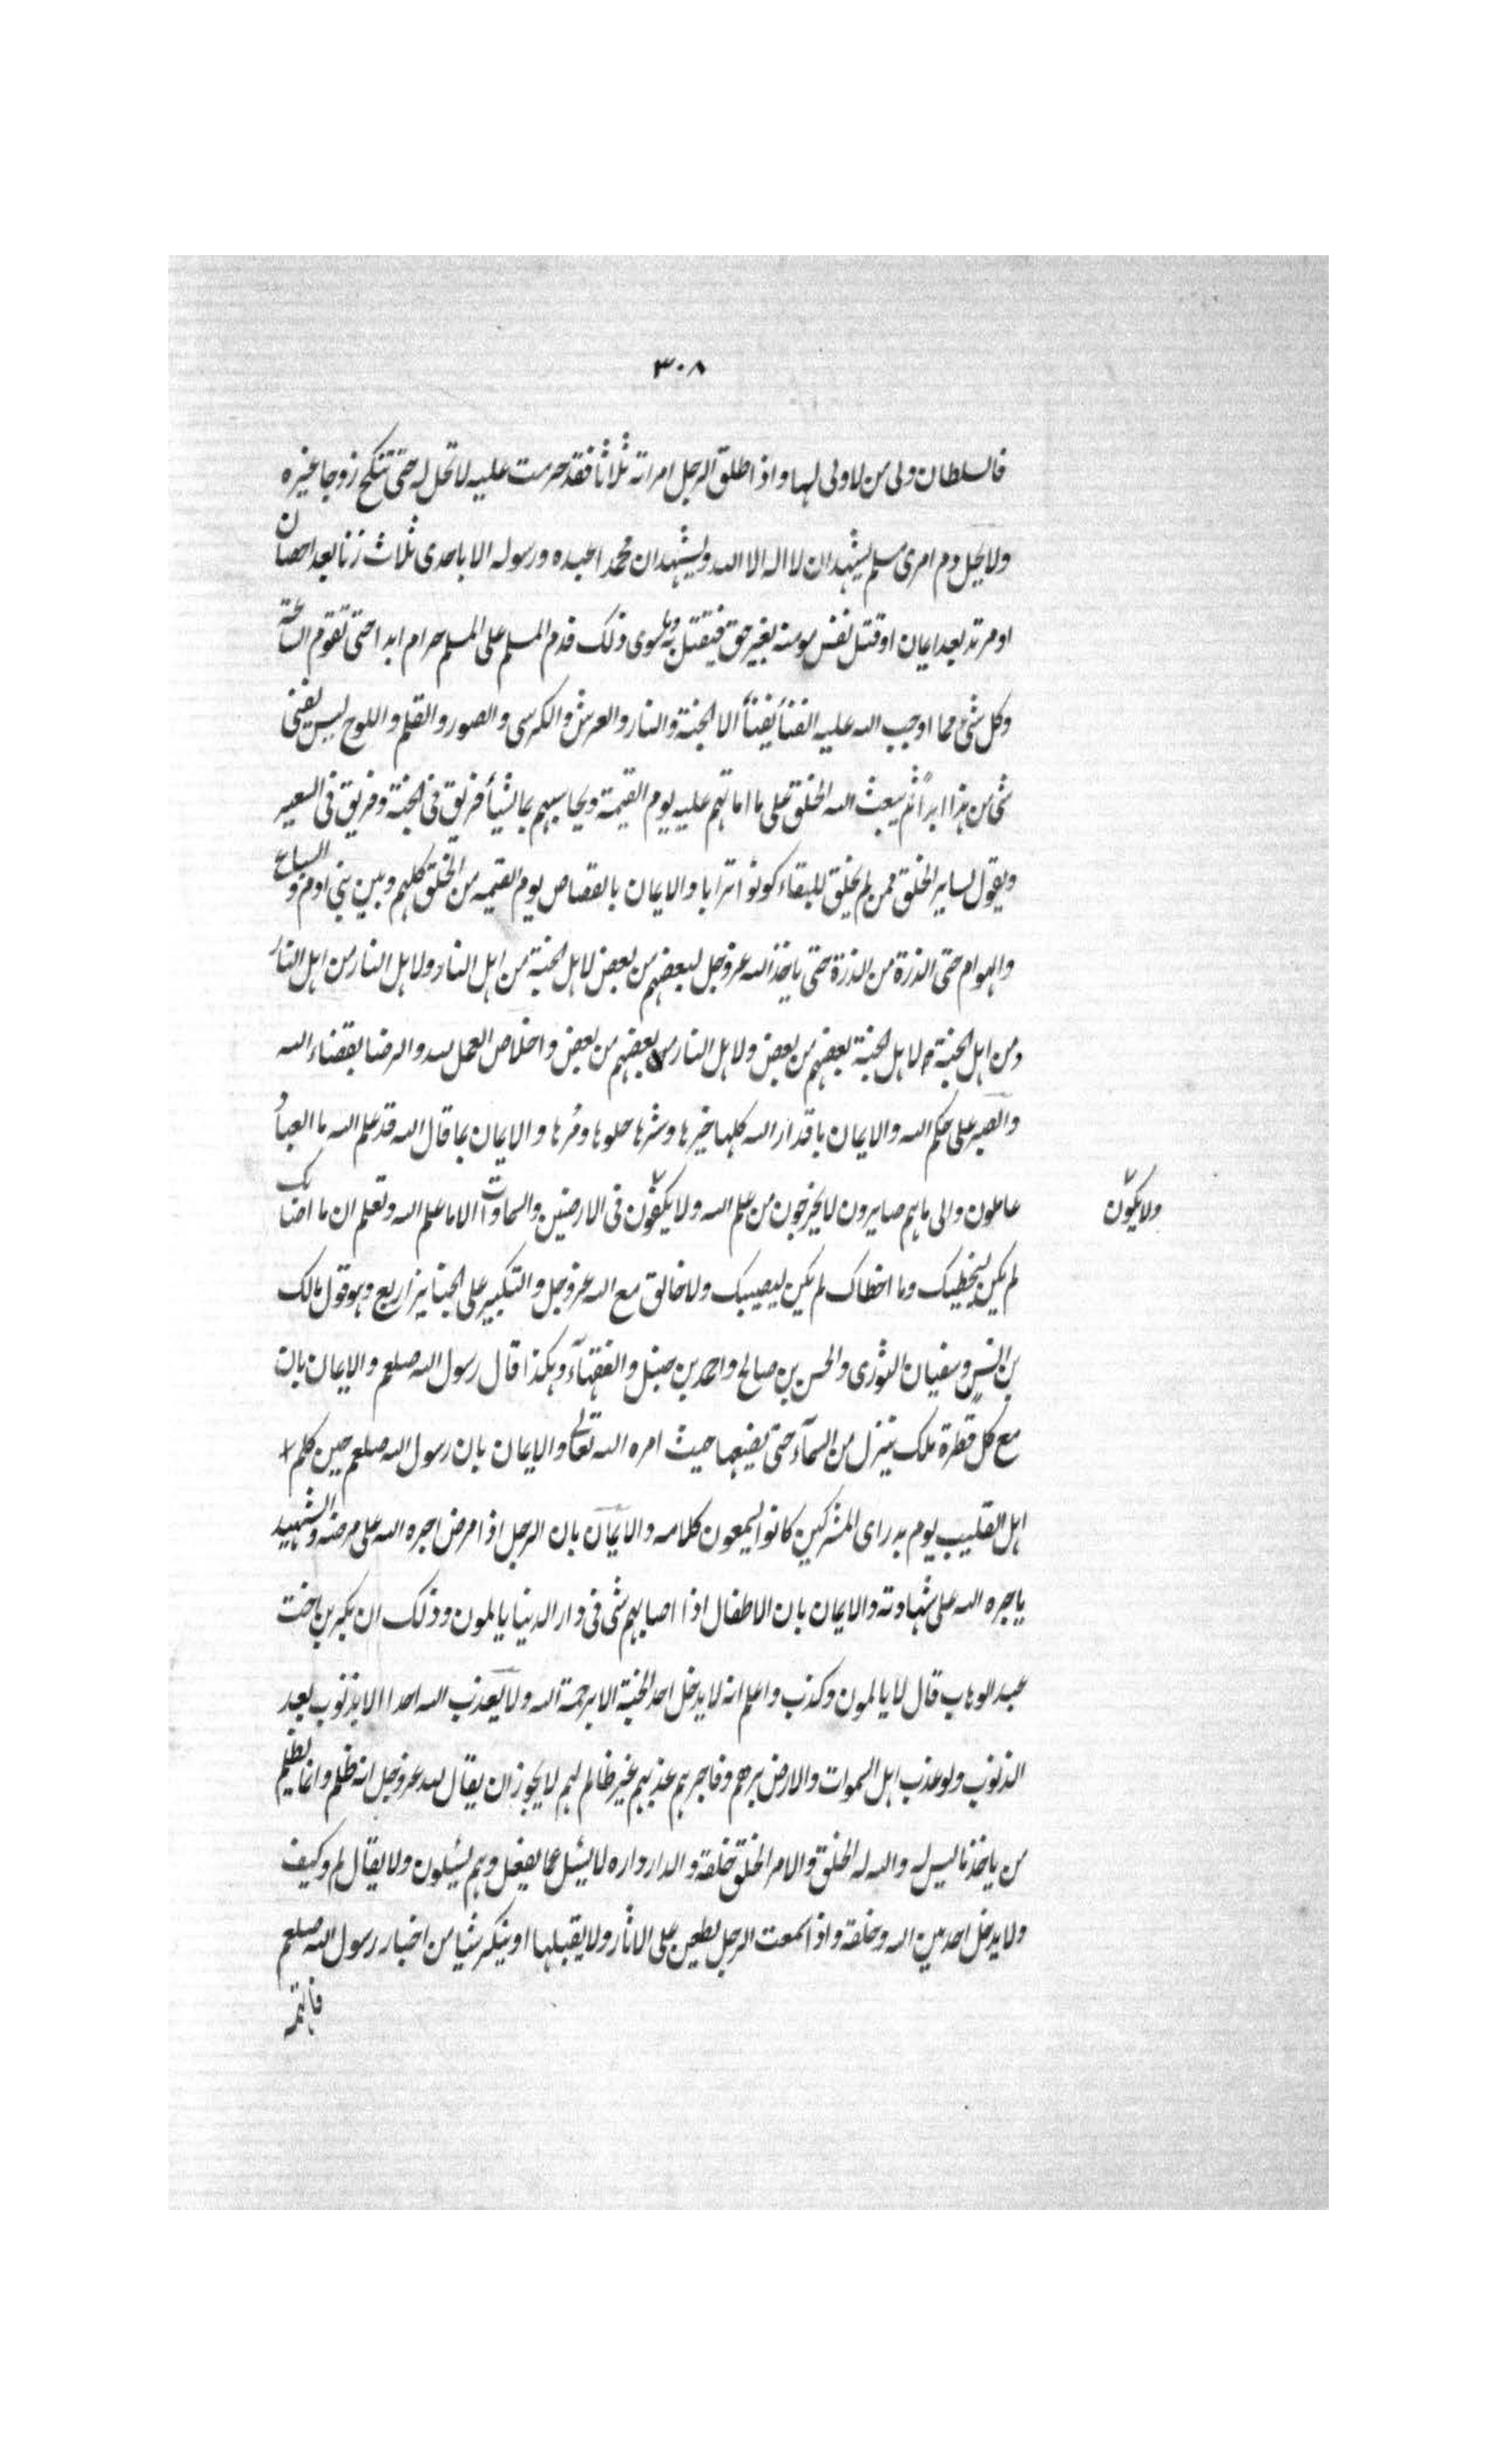 ٣٠٨
فالسلطان ولى من لا ولى لها واذا طلق الرجل امراته ثلاثا فقد حرمت عليه لا تحل له حتى تنكح زوجا غيره
ولا يحل دم امرى مسلم يشهد ان لا اله الا الله ويشهد ان محمدا عبده ورسوله الا باحدى ثلاث زنا بعد احصان
او مرتد بعد ايمان او قتل نفس مومنة بغير حق فيقتل به وما سوى ذلك فدم المسلم على المسلم حرام ابدا حتى تقوم الساعة
وكل شئ مما اوجب الله عليه الفنأ يفنأ الا الجنة والنار والعرش والكرسى والصور والقلم واللوح ليس يفنى
شئ من هذا ابداً ثم يبعث الله الخلق على ما اماتهم عليه يوم القيمة ويحاسبهم بما يشأ فريق فى الجنة وفريق فى السعير
ويقول لساير الخلق ممن لم يخلق للبقاء كونوا ترابا والايمان بالقصاص يوم القيمه من الخلق كلهم وبين بنى ادم والسباع
والهوام حتى الذرة من الذرة حتى ياخذ الله عز وجل لبعضهم من بعض لاهل الجنة من اهل النار ولاهل النار من اهل النار
ومن اهل الجنة ولاهل الجنة بعضهم من بعض ولاهل النار بعضهم من بعض واخلاص العمل لله والرضا بقضاء الله
والصبر على حكم الله والايمان باقدار الله كلها خيرها وشرها حلوها ومرها والايمان بما قال الله قد علم الله ما العباد
عاملون والى ما هم صايرون لا يخرجون من علم الله ولا يكون فى الارضين والسماوات الا ما علم الله وتعلم ان ما اصابك
ولا يكون
لم يكن ليخطيك وما اخطاك لم يكن ليصيبك ولا خالق مع الله عز وجل والتكبير على الجنايز اربع وهو قول مالك
بن انس وسفيان الثورى والحسن بن صالح واحمد بن حنبل والفقهآء وهكذا قال رسول الله صلعم والايمان بان
مع كل قطرة ملك ينزل من السمآء حتى يضعها حيث امره الله تعالى والايمان بان رسول الله صلعم حين كلم
اهل القليب يوم بدر اى المشركين كانوا يسمعون كلامه والايمان بان الرجل اذا مرض اجره الله على مرضه والشهيد
ياجره الله على شهادته والايمان بان الاطفال اذا اصابهم شئ فى دار الدنيا يالمون وذلك ان بكر بن اخت
عبد الوهاب قال لا يالمون وكذب واعلم انه لا يدخل احد الجنة الا برحمة الله ولا يعذب الله احدا الا بذنوب بعد
الذنوب ولو عذب اهل السموات والارض برهم وفاجرهم عذبهم غير ظالم لهم لا يجوز ان يقال لله عز وجل انه ظلم وانما يظلم
من ياخذ ما ليس له والله له الخلق والامر الخلق خلقه والدار داره لا يسئل عما يفعل وهم يسئلون ولا يقال لم وكيف
ولا يدخل احد بين الله وخلقه واذا سمعت الرجل يطعن على الاثار ولا يقبلها او ينكر شيا من اخبار رسول الله صلعم
فاتهمه